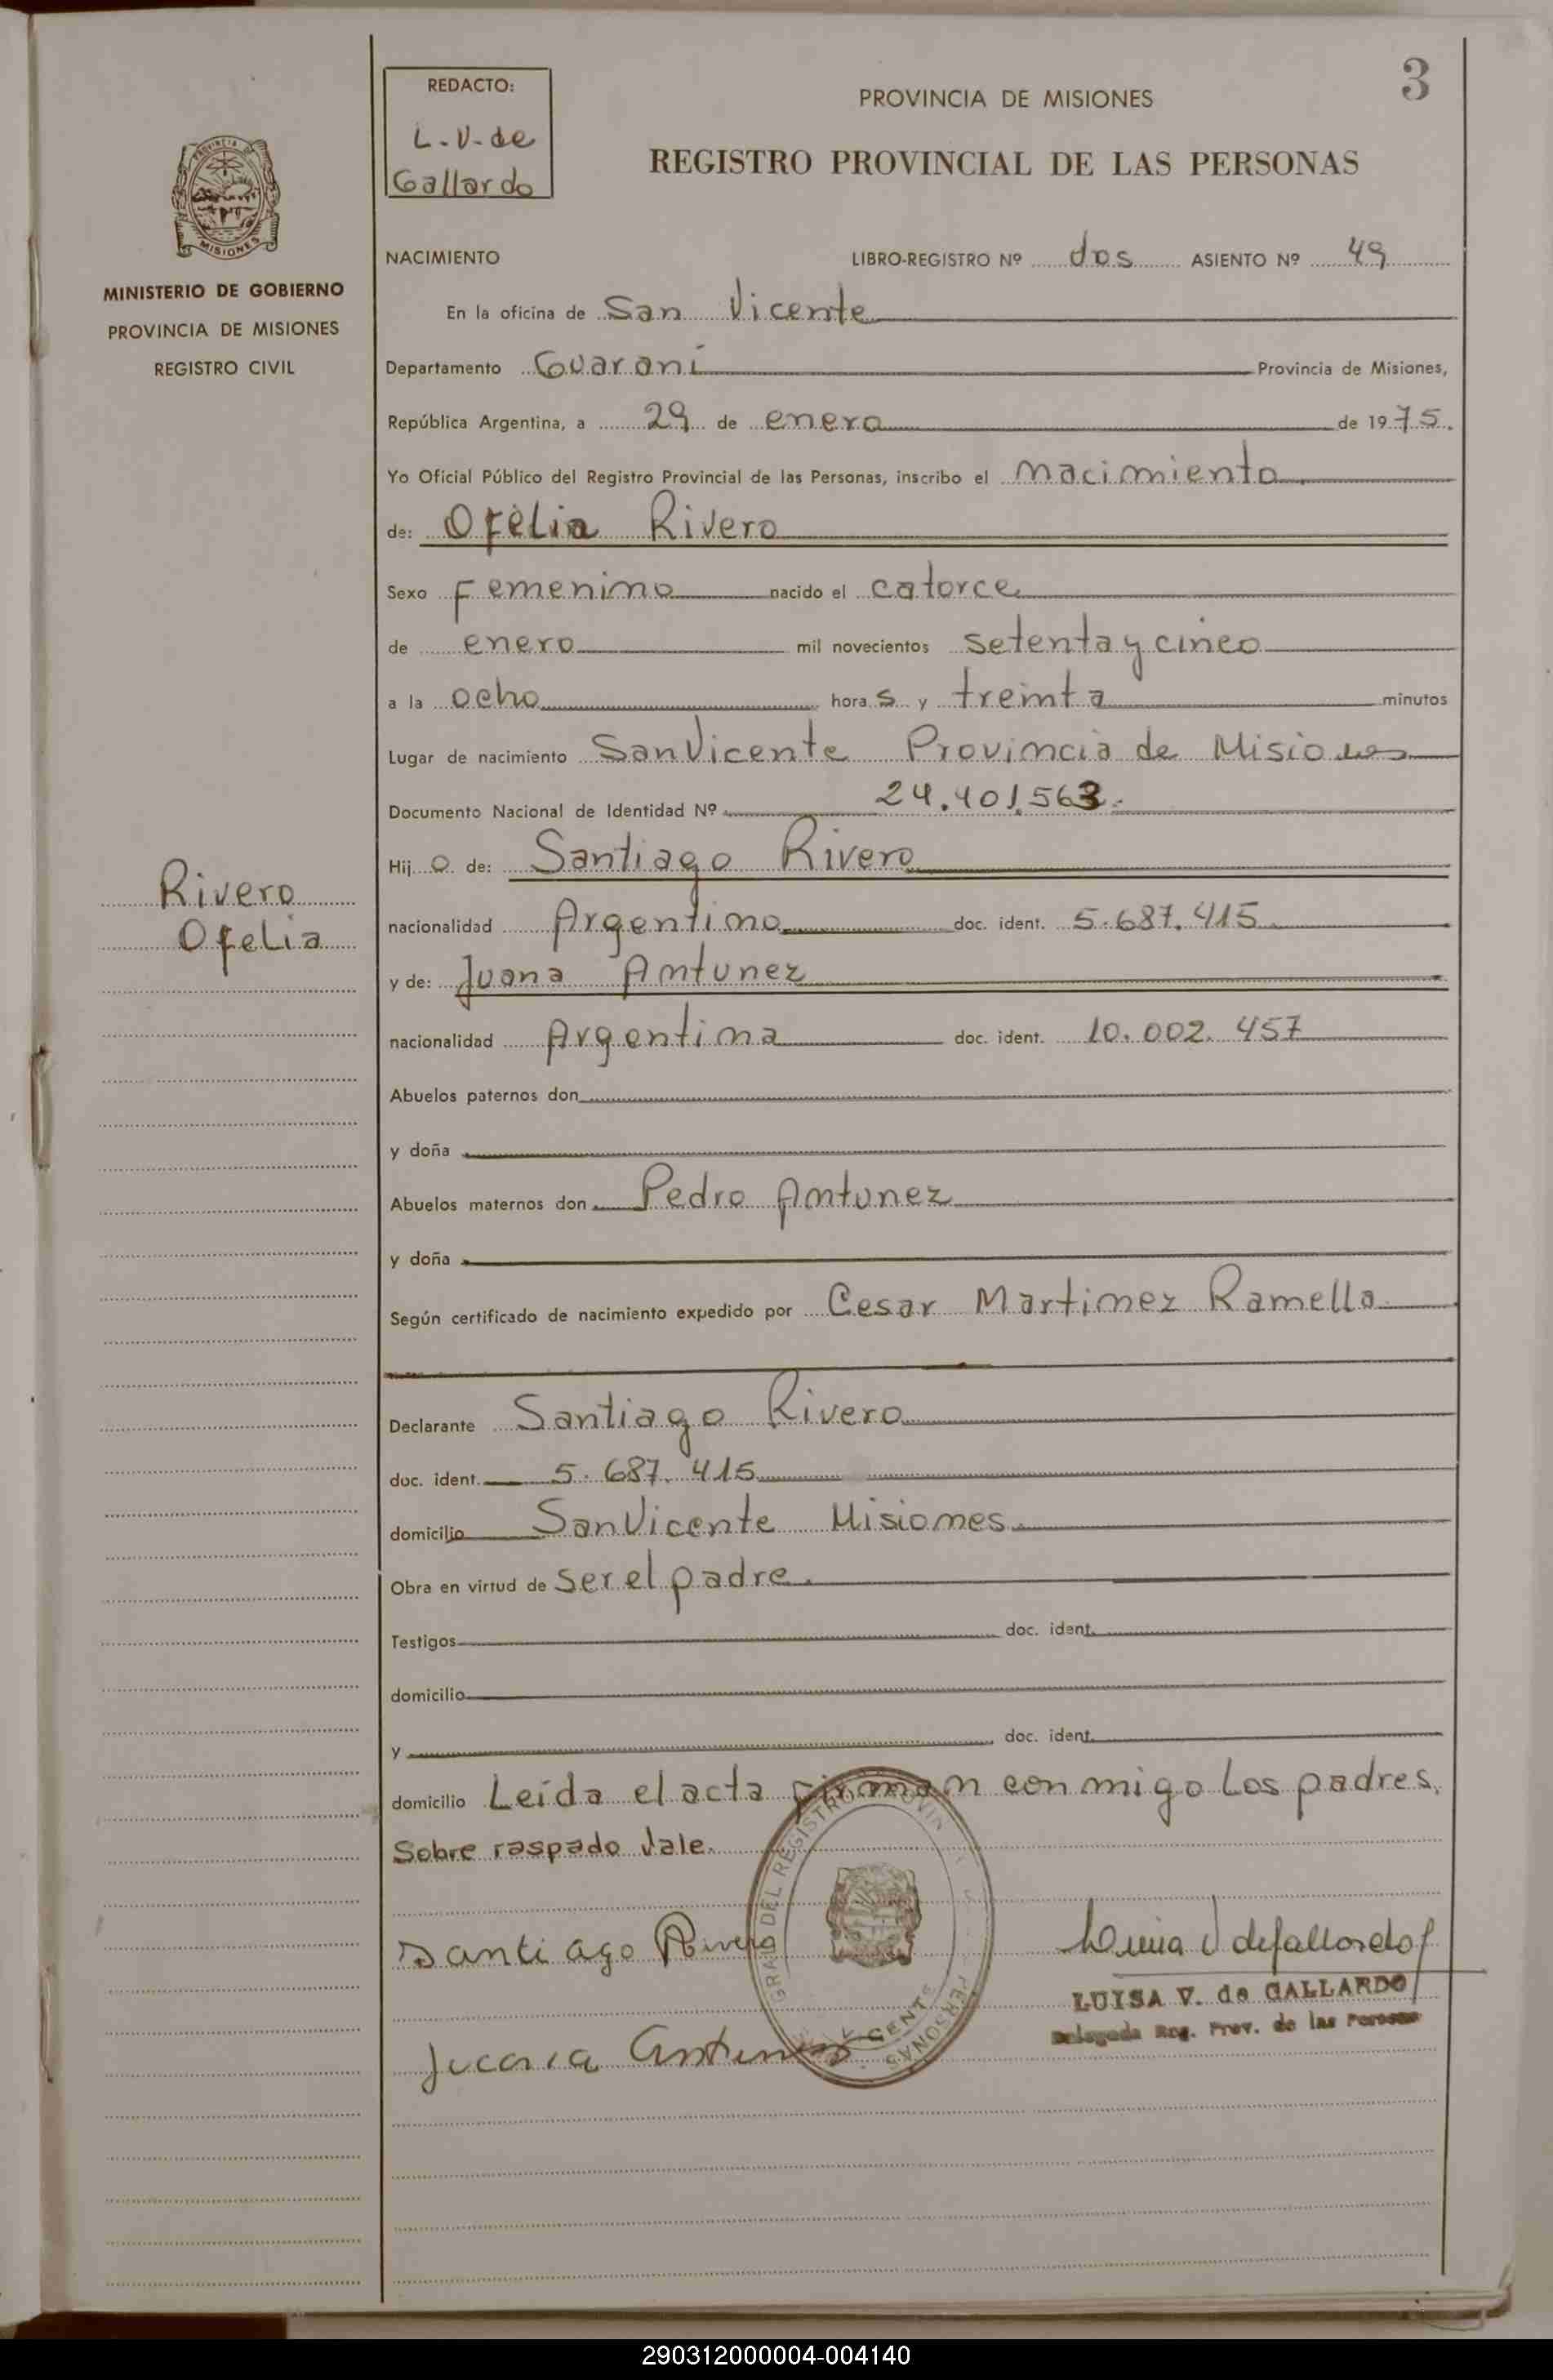 3
REDACTO:
L.V. de
Gallardo
PROVINCIA DE MISIONES
REGISTRO PROVINCIAL DE LAS PERSONAS
MISIONES
MINISTERIO DE GOBIERNO
PROVINCIA DE MISIONES
REGISTRO CIVIL
NACIMIENTO LIBRO-REGISTRO Nº dos ASIENTO Nº 49
En la oficina de San Vicente
Departamento Guaraní Provincia de Misiones,
República Argentina, a 29 de enero de 1975.
Yo Oficial Público del Registro Provincial de las Personas, inscribo el nacimiento
de: Ofelia Rivero
Sexo Femenino nacido el catorce
de enero mil novecientos setenta y cinco
a la ocho hora s y treinta minutos
Lugar de nacimiento San Vicente Provincia de Misiones
Documento Nacional de Identidad Nº 24.401.563.
Hij o de: Santiago Rivero
Rivero
Ofelia
nacionalidad Argentino doc. ident. 5.687.415.
y de: Juana Antunez
nacionalidad Argentina doc. ident. 10.002.457
Abuelos paternos don
y doña
Abuelos maternos don Pedro Antunez
y doña
Según certificado de nacimiento expedido por Cesar Martinez Ramella
Declarante Santiago Rivero
doc. ident. 5.687.415
domicilio San Vicente Misiones.
Obra en virtud de ser el padre.
Testigos doc. ident.
domicilio
y doc. ident.
domicilio Leída el acta firman conmigo los padres.
Sobre raspado vale.
Santiago Rivero
Juana Antunez
LUISA V. de GALLARDO
Delegada Reg. Prov. de las Personas
290312000004-004140